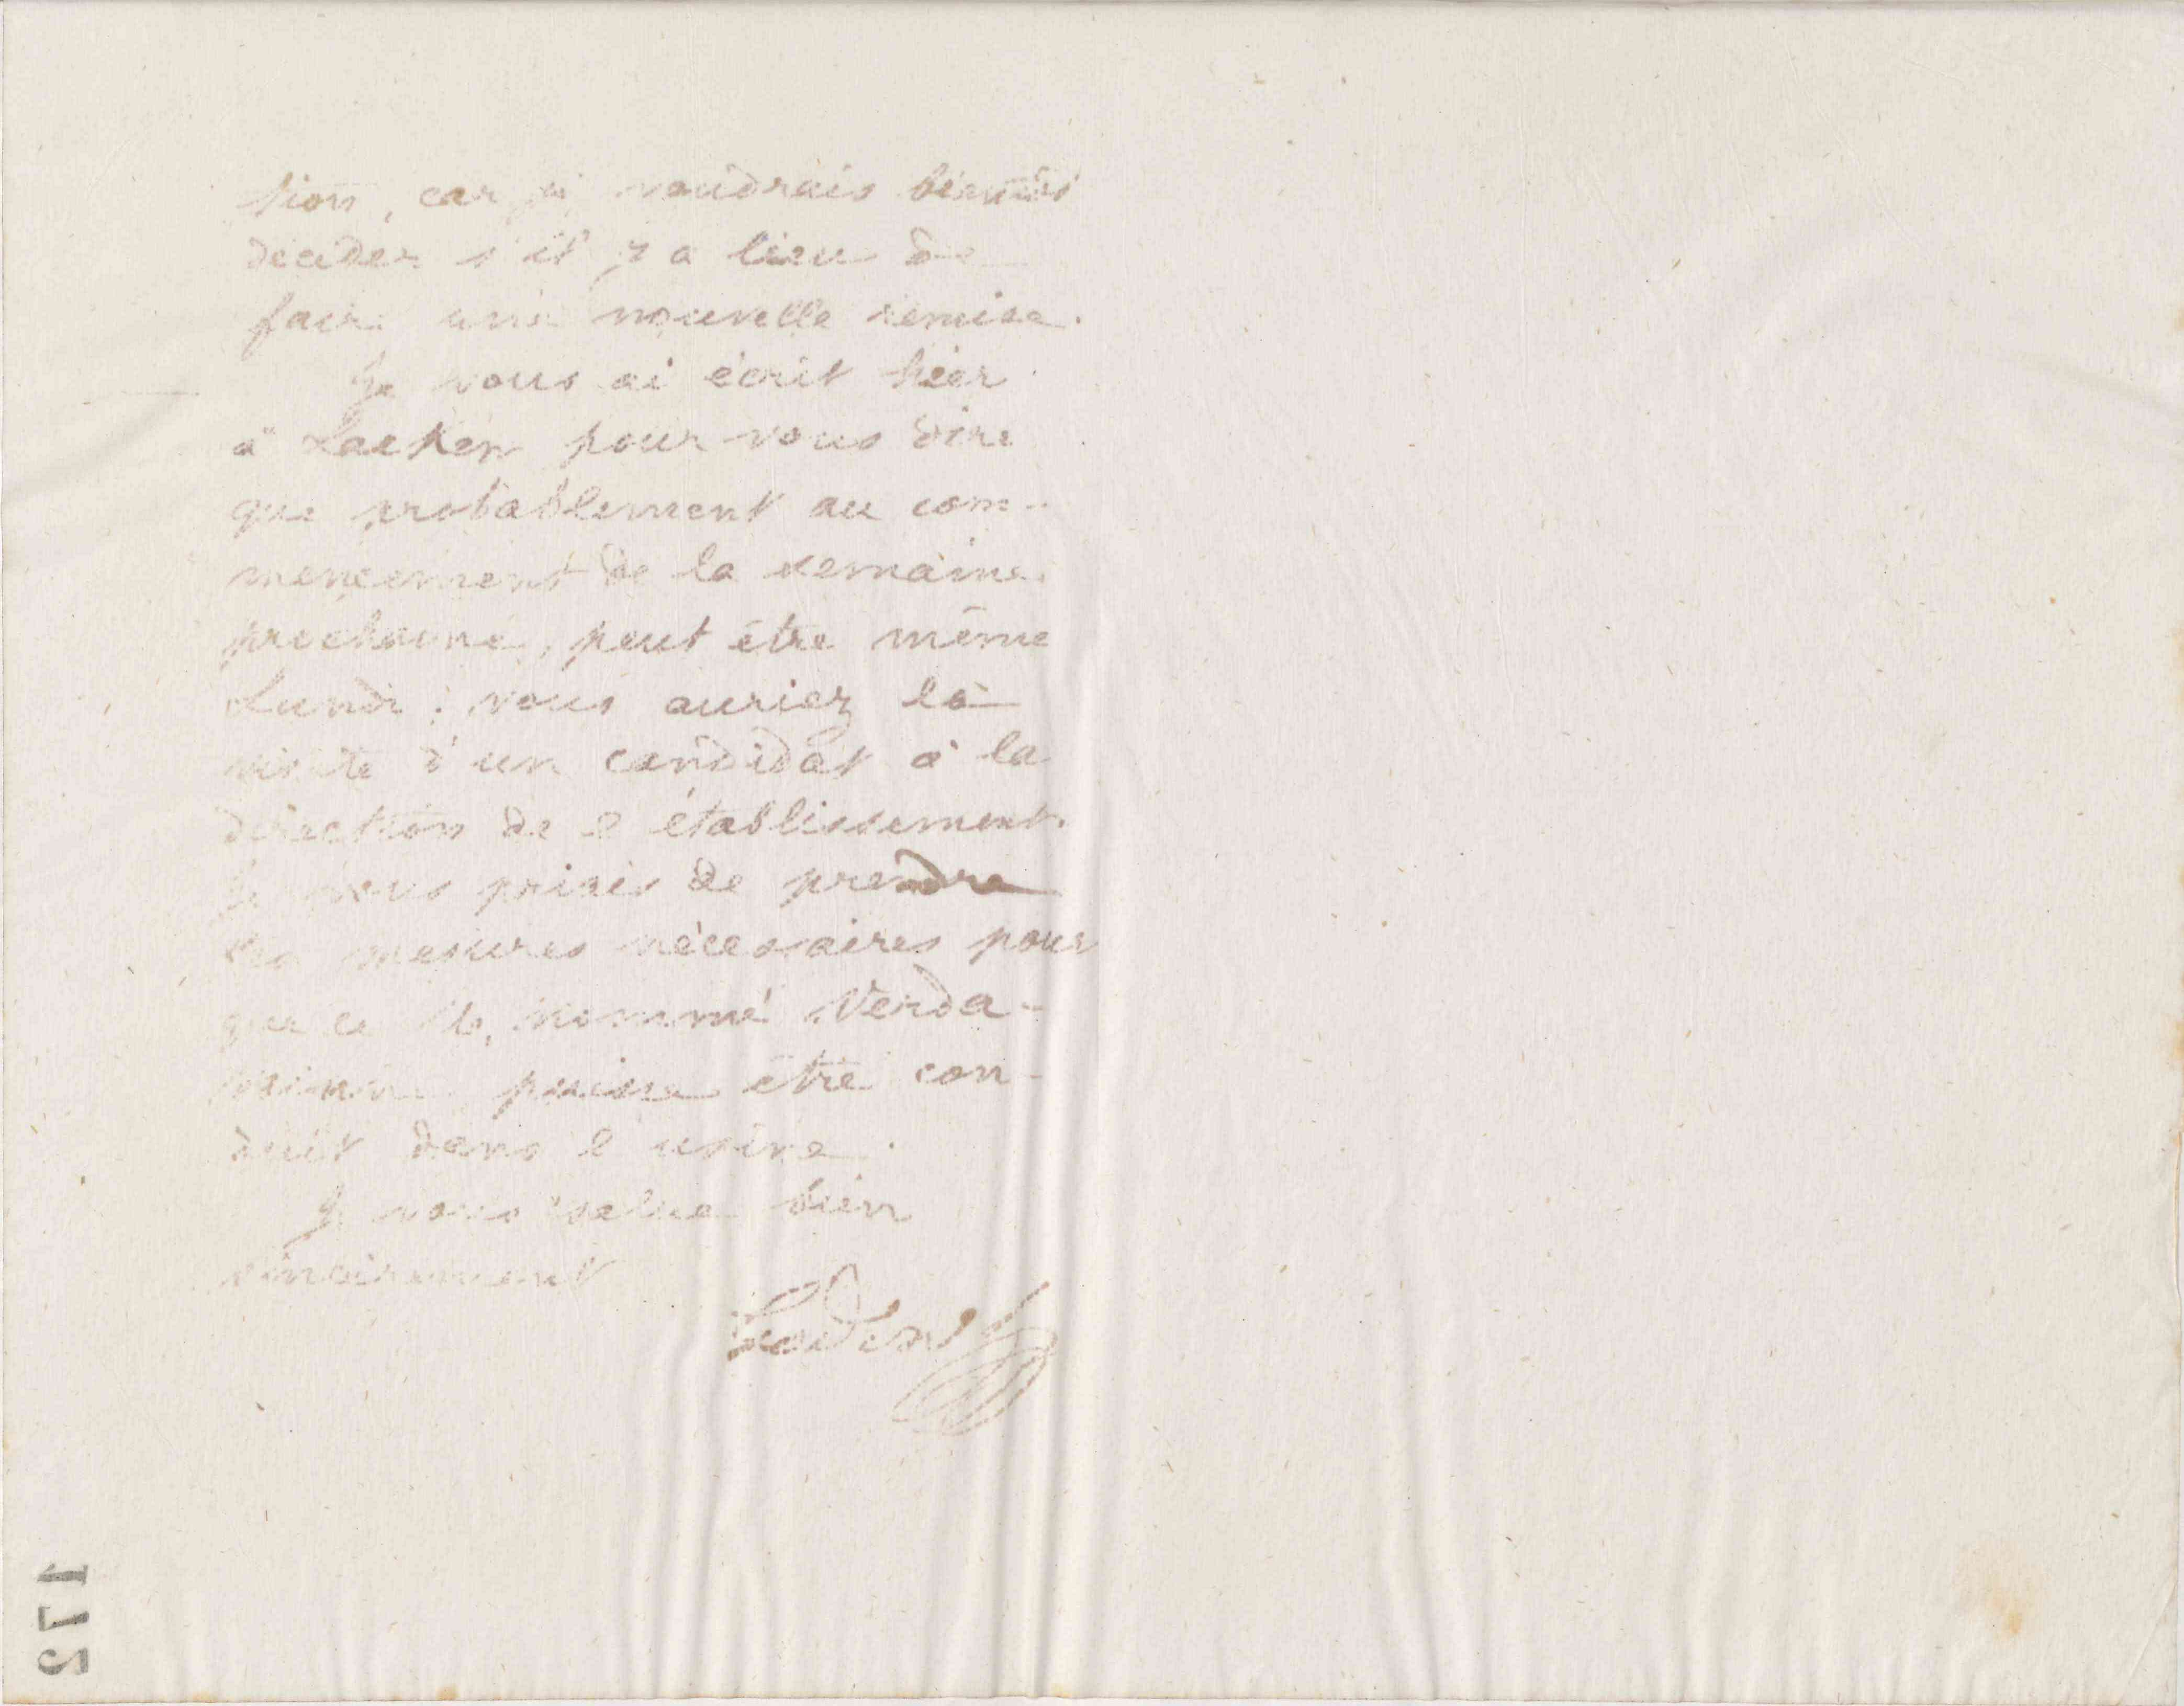 tion, car je voudrais bientôt
décider s'il y a lieu de
faire une nouvelle remise.
Je vous ai écrit hier
à Laeken pour vous dire
que probablement au com-
mencement de la semaine
prochaine, peut être même
Lundi; vous auriez la
visite d'un candidat à la
direction de l'établissement.
Je vous priais de prendre
les mesures nécessaires pour
que ce nommé Verda-
puisse être con-
duit dans l'usine.
Je vous salue bien
sincèrement
172